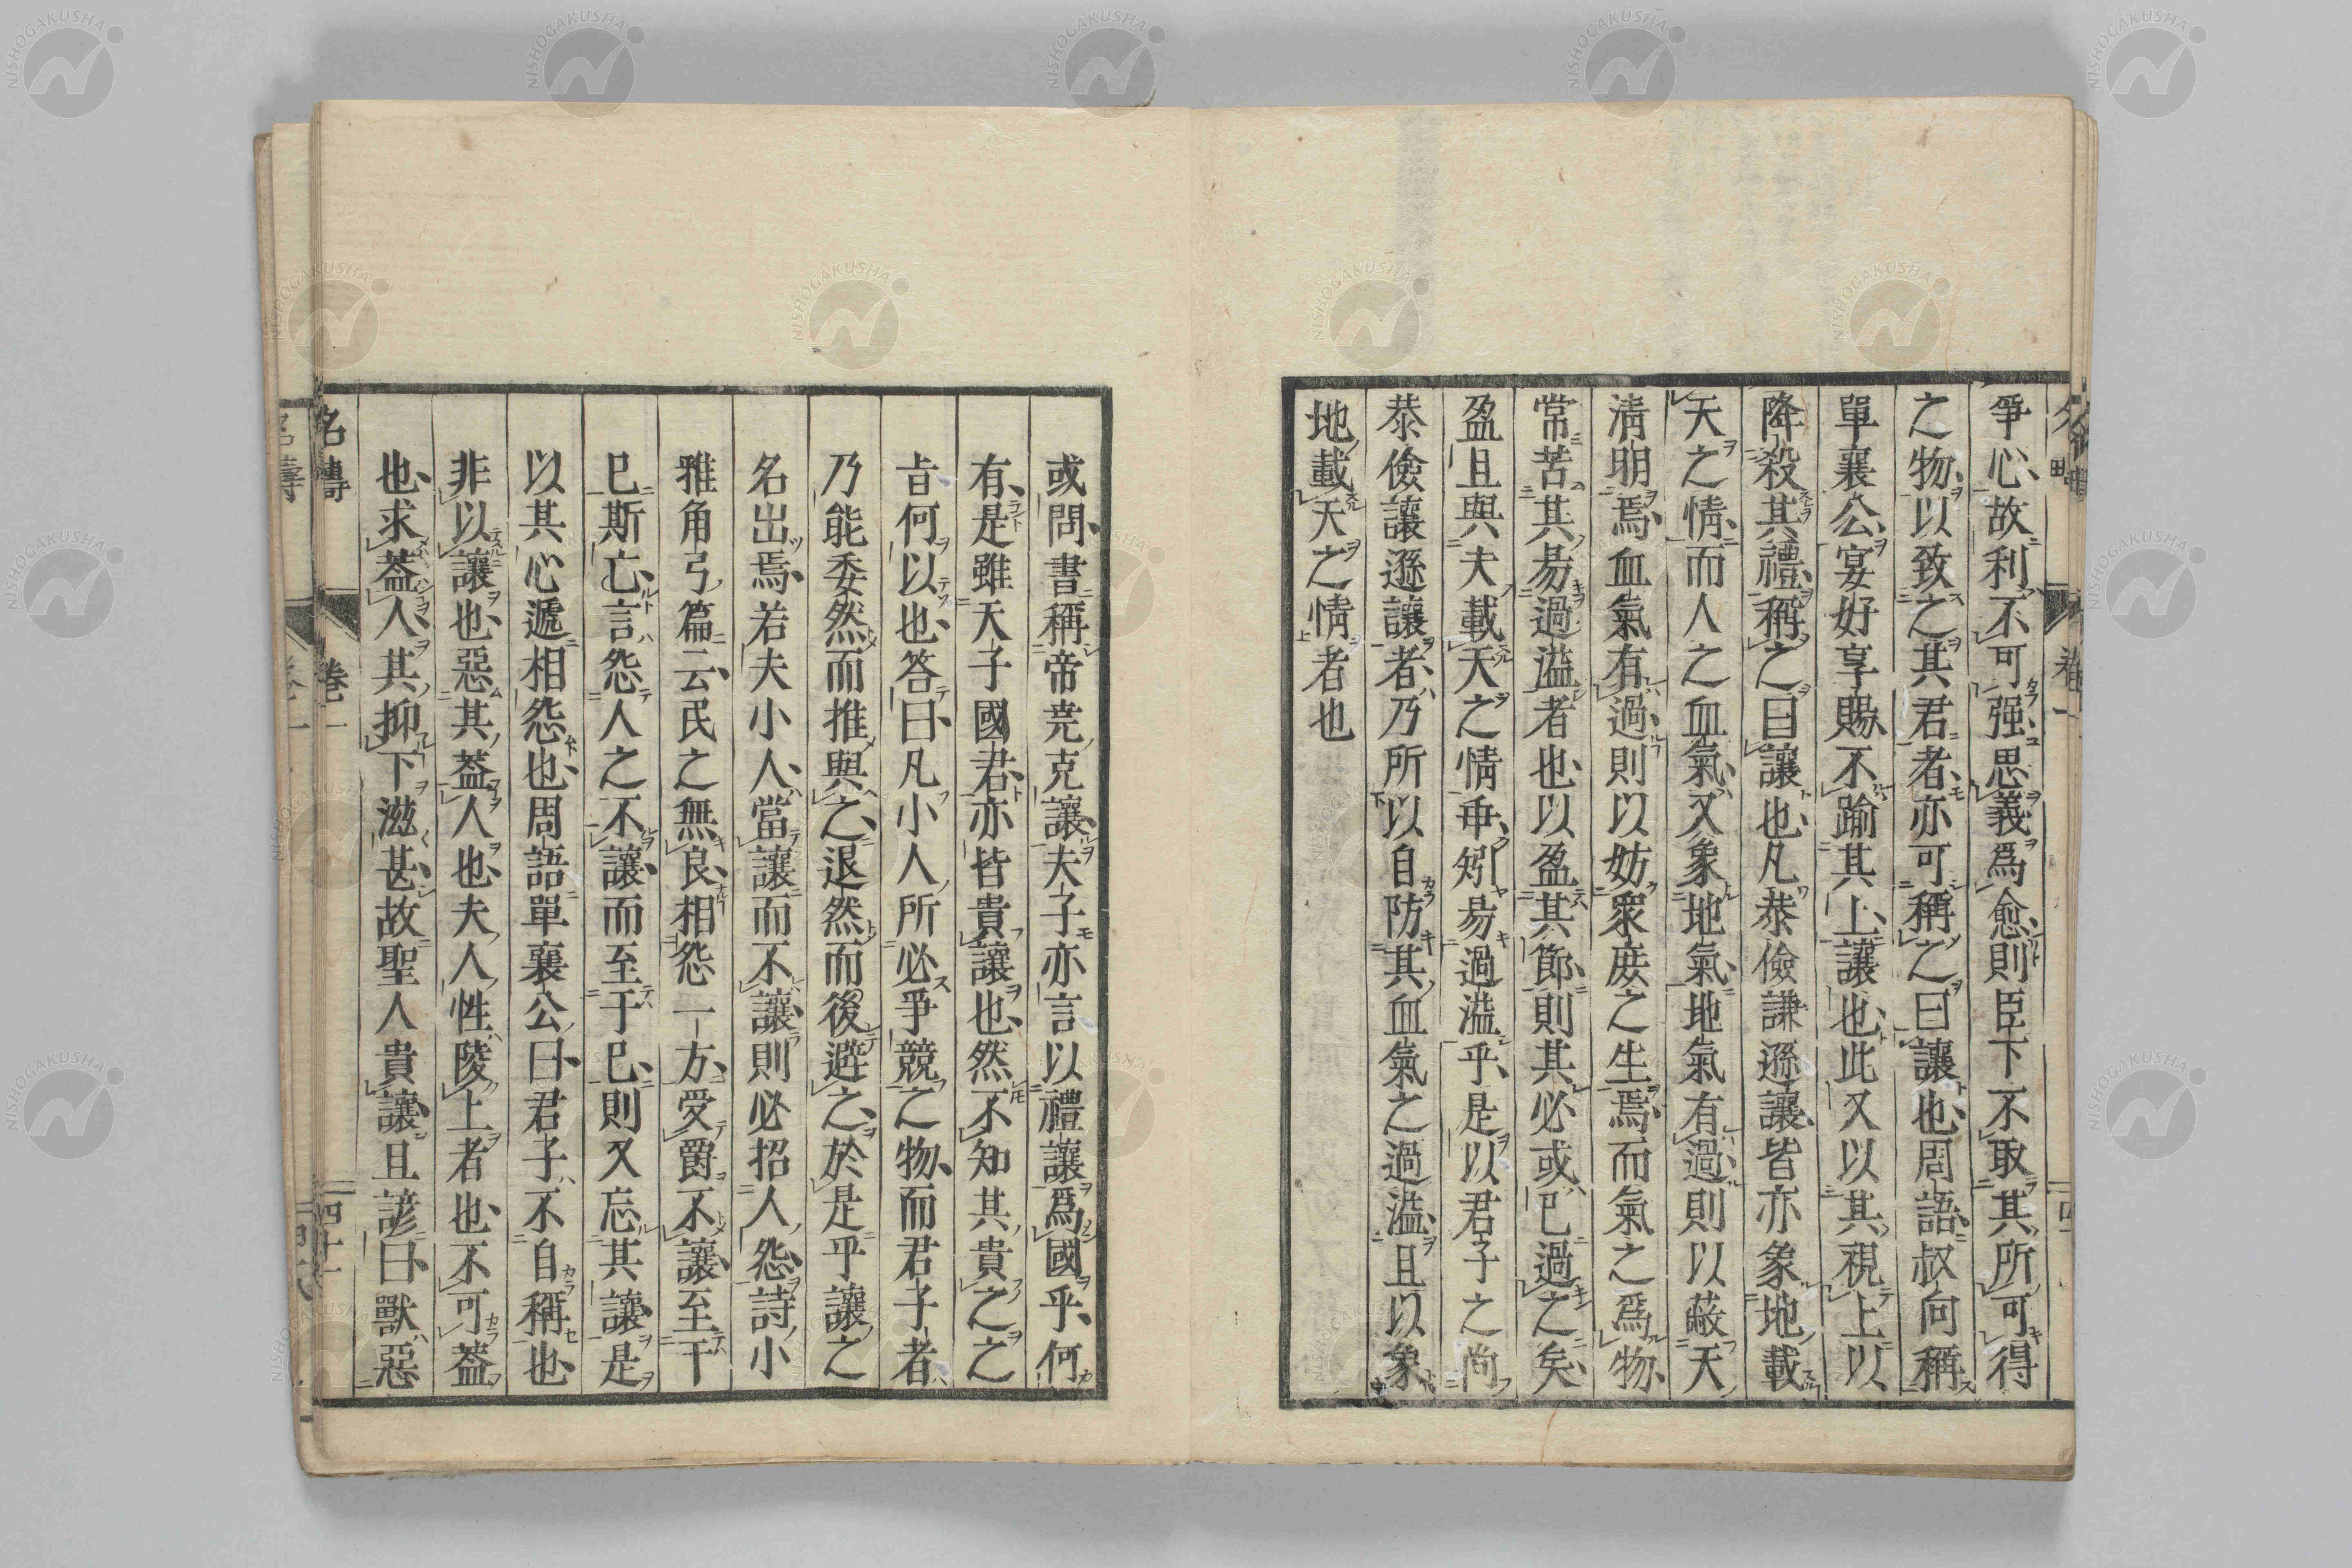 爭心、故利不可强、思義爲愈、則臣下不取其所可得
之物、以致之其君者、亦可稱之曰讓也、周語、叔向稱
單襄公、宴好享賜、不踰其上、讓也、此又以其視上以
降殺其禮、稱之曰讓也、凡恭儉謙遜讓、皆亦象地載
天之情、而人之血氣、又象地氣、地氣有過、則以蔽天
淸明焉、血氣有過、則以妨衆庶之生焉、而氣之爲物、
常苦其易過溢者也、以盈其節、則其必或已過之矣、
盈且與夫載天之情乖、矧易過溢乎、是以君子之尚
恭儉讓遜讓者、乃所以自防其血氣之過溢、且以象
地載天之情者也
或問、書稱帝堯克讓、夫子亦言以禮讓爲國乎、何
有、是雖天子國君、亦皆貴讓也、然不知其貴之之
旨何以也、答曰、凡小人所必爭競之物、而君子者
乃能委然而推與之、退然而後避之、於是乎讓之
名出焉、若夫小人、當讓而不讓、則必招人怨、詩小
雅角弓篇云、民之無良、相怨一方、受爵不讓、至于
已斯亡、言怨人之不讓、而至于已、則又忘其讓、是
以其心遞相怨也、周語單襄公曰、君子不自稱也、
非以讓也、惡其葢人也、夫人性陵上者也、不可葢
也、求葢人其抑下滋甚、故聖人貴讓、且諺曰、獸惡
名疇
卷一
四十一